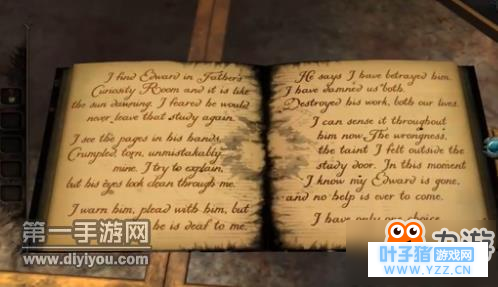 I find Edward in Father's
Curiosity Room and it is like
the sun dawning. I feared he would
never leave that study again.
I see the pages in his hands.
Crumpled, torn, unmistakably
mine. I try to explain,
but his eyes look clean through me.
I warn him, plead with him, but
he is deaf to me.
He says I have betrayed him.
I have damned us both.
Destroyed his work, both our lives.
I can sense it throughout
him now. The wrongness,
the taint I felt outside the
study door. In this moment
I know my Edward is gone,
and no help is ever to come.
I have only one choice
第一手游网
www.diyiyou.com
九游
叶子猪 游戏网
www.YZZ.CN